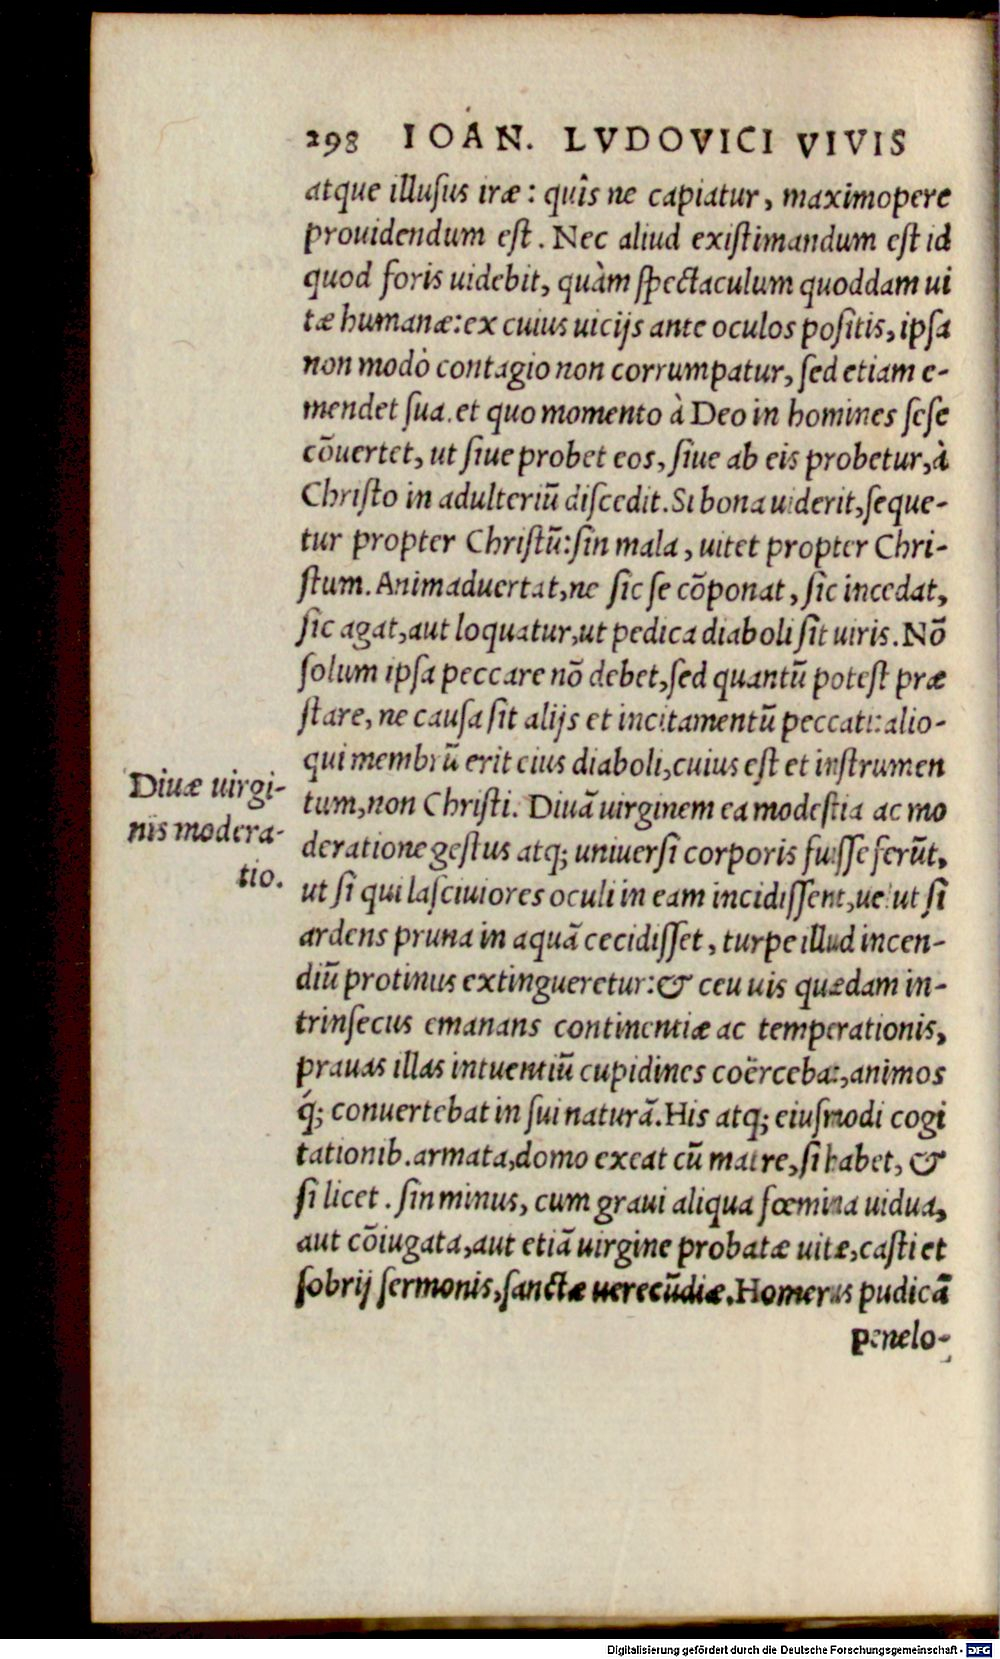 298 IOAN. LVDOVICI VIVIS
atque illusus iræ: quîs ne capiatur, maximopere
prouidendum est. Nec aliud existimandum est id
quod foris uidebit, quàm spectaculum quoddam ui
tæ humanæ: ex cuius uicijs ante oculos positis, ipsa
non modò contagio non corrumpatur, sed etiam e-
mendet sua. et quo momento à Deo in homines sese
cõuertet, ut siue probet eos, siue ab eis probetur, à
Christo in adulteriũ discedit. Si bona uiderit, seque-
tur propter Christũ: sin mala, uitet propter Chri-
stum. Animaduertat, ne sic se cõponat, sic incedat,
sic agat, aut loquatur, ut pedica diaboli sit uiris. Nõ
solum ipsa peccare nõ debet, sed quantũ potest præ
stare, ne causa sit alijs et incitamentũ peccati: alio-
qui membrũ erit eius diaboli, cuius est et instrumen
Diuæ uirgi-
nis modera-
tio.
tum, non Christi. Diuã uirginem ea modestia ac mo
deratione gestus atq; uniuersi corporis fuisse ferũt,
ut si qui lasciuiores oculi in eam incidissent, uelut si
ardens pruna in aquã cecidisset, turpe illud incen-
diũ protinus extingueretur: & ceu uis quædam in-
trinsecus emanans continentiæ ac temperationis,
prauas illas intuentiũ cupidines coërcebat, animos
q́; conuertebat in sui naturã. His atq; eiusmodi cogi
tationib. armata, domo exeat cũ matre, si habet, &
si licet. sin minus, cum graui aliqua fœmina uidua,
aut cõiugata, aut etiã uirgine probatæ uitæ, casti et
sobrij sermonis, sanctæ uerecũdiæ. Homerus pudicã
penelo-
Digitalisierung gefördert durch die Deutsche Forschungsgemeinschaft - DFG